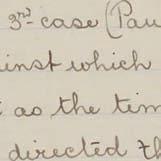 3rd case (Pau
inst which
as the tim
directed th